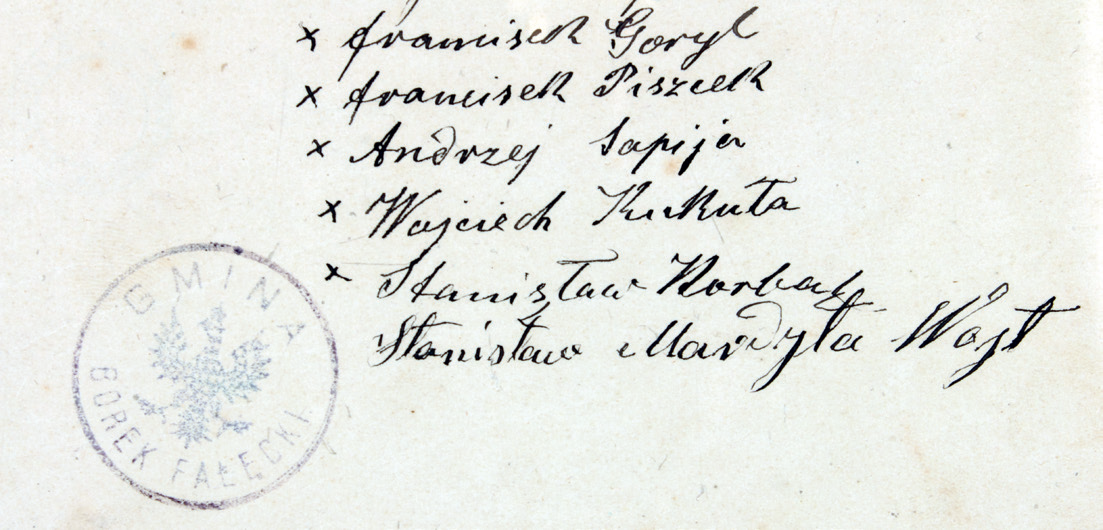 × Francisek Goryl
× Francisek Piszcek
× Andrzej Sapija
× Wojciech Kukuła
× Stanisław Korbal
Stanisław Mardyła Wójt
GMINA
BOREK FAŁĘCKI